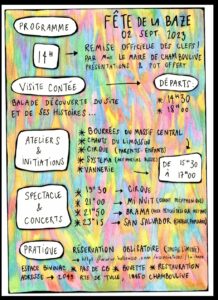 PROGRAMME
FÊTE DE LA BAZE
02 SEPT. 2023
14H
REMISE OFFICIELLE DES CLEFS !
PAR LE MAIRE DE CHAMBOULIVE
PRÉSENTATIONS & POT OFFERT
VISITE CONTÉE
DÉPARTS
BALADE DÉCOUVERTE DU SITE
ET DE SES HISTOIRES...
* 14H30
* 18H00
ATELIERS & INITIATIONS
* BOURRÉES DU MASSIF CENTRAL
* CHANTS DU LIMOUSIN
* CIRQUE (PARENTS-ENFANTS)
* SYSTEMA
* VANNERIE
DE 15H30 À 17H00
SPECTACLE & CONCERTS
* 19H30 → CIRQUE
* 21H00 → MI NUIT
* 21H50 → BRAMA
* 23H15 → SAN SALVADOR
PRATIQUE
RÉSERVATION OBLIGATOIRE
ESPACE BIVOUAC * PAS DE CB * BUVETTE * RESTAURATION
ADRESSE → CHAMBOULIVE